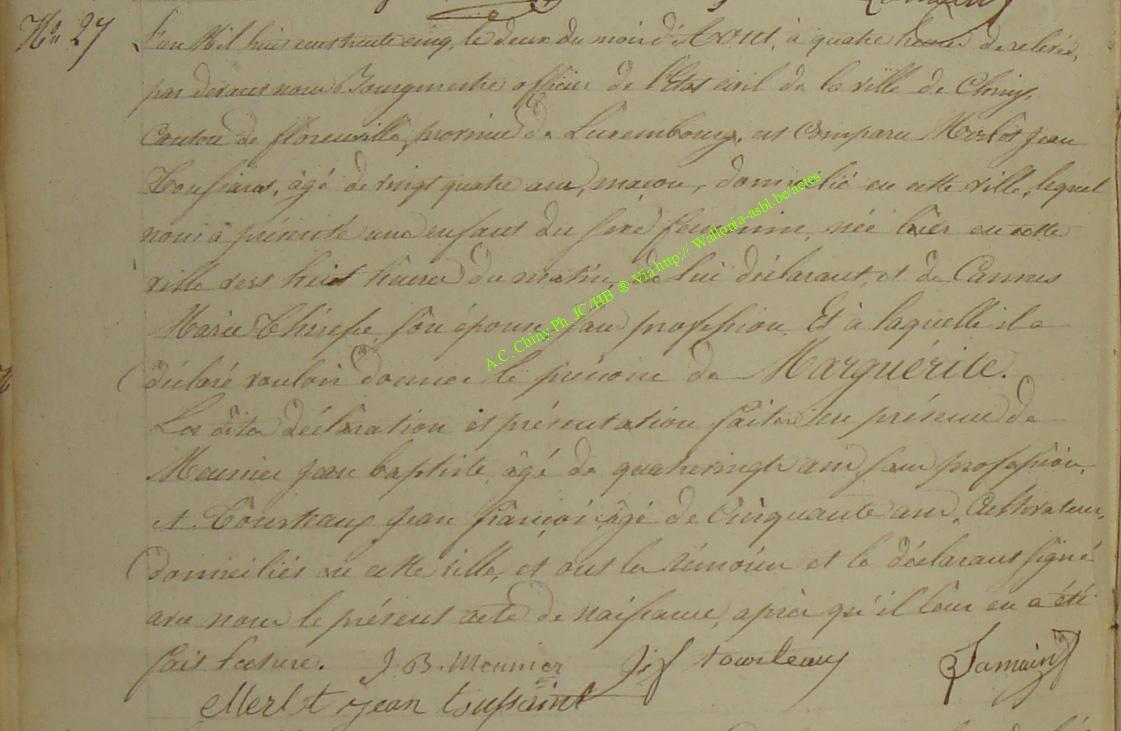 No 27
L'an Mil huit cent trente cinq, le deux du mois d'Aout, à quatre heures de relevée,
par devant nous Bourgmestre officier de l'Etat civil de la ville de Chiny,
Canton de florenville, province de Luxembourg, est comparu Merlot Jean
Toussaint, âgé de vingt quatre ans, macon, domicilié en cette ville, lequel
nous à présenté une enfant du sexe feminin, née hier en cette
ville vers huit heures du matin, de lui déclarant, et de Cannes
Marie Thérèse, son épouse, sans profession. Et à laquelle il a
déclaré vouloir donner le prénom de Marguérite.
Les dites déclaration et présentation faites en présence de
Meunier Jean baptiste, âgé de quatrevingt ans sans profession,
et Tourteaux Jean françois, âgé de Cinquante ans, Cultivateur,
domiciliés en cette ville, et ont les témoins et le déclarant signé
avec nous le présent acte de naissance, après qu'il leur en a été
fait lecture. J. B. Meunier J. f tourteaux Jamain
Merlot jean toussaint
A.C. Chiny Ph. JC/HB ® Via http:// Wallonia-asbl.be/actes